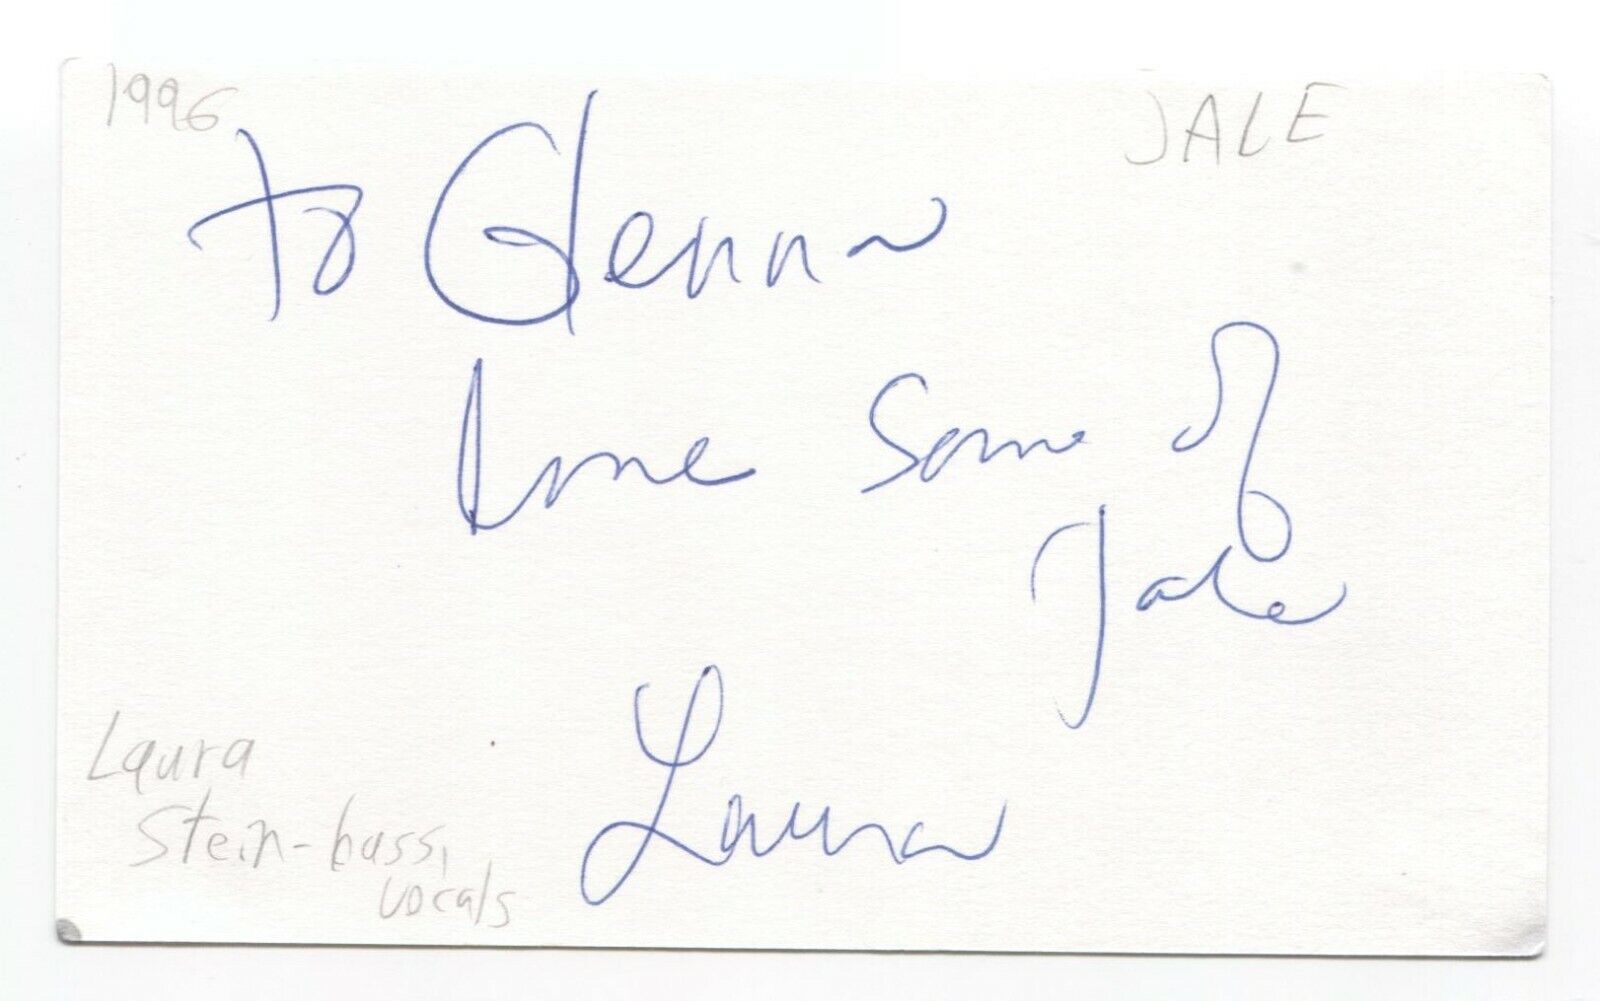 1996
JALE
To Glenn
love some of
Jale
Laura
Laura
Stein-bass,
vocals